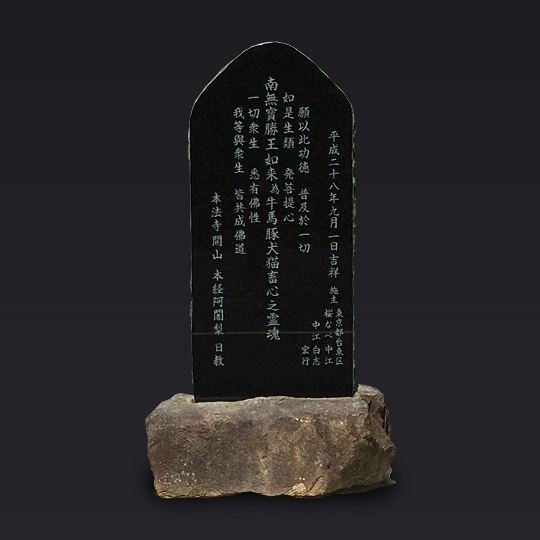 平成二十八年九月一日吉祥 施主
東京都台東区
桜なべ 中江
中江 白志
宏行
願以此功徳 普及於一切
如是生類 発菩提心
南無寳勝王如来為牛馬豚犬猫畜心之霊魂
一切衆生 悉有佛性
我等與衆生 皆共成佛道
本法寺開山 本経阿闍梨 日教